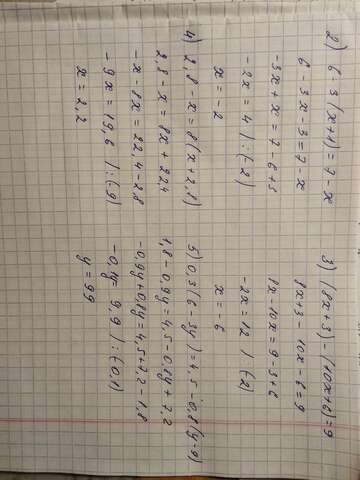 2) 6 - 3(x+1) = 7 - x
6 - 3x - 3 = 7 - x
-3x + x = 7 - 6 + 3
-2x = 4 | : (-2)
x = -2
3) (8x+3) - (10x+6) = 9
8x+3 - 10x - 6 = 9
8x - 10x = 9 - 3 + 6
-2x = 12 | (-2)
x = -6
4) 2,8 - x = 8(x+2,8)
2,8 - x = 8x + 22,4
-x - 8x = 22,4 - 2,8
-9x = 19,6 | : (-9)
x = 2,2
5) 0,3(6 - 3y) = 4,5 - 0,8(y-9)
1,8 - 0,9y = 4,5 - 0,8y + 7,2
-0,9y + 0,8y = 4,5 + 7,2 - 1,8
-0,1y = 9,9 | : (-0,1)
y = 99